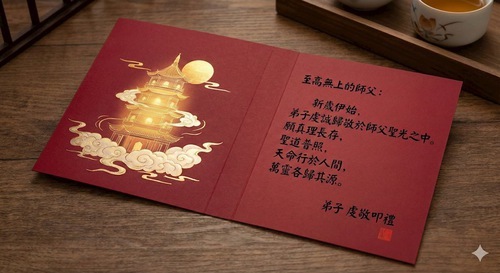 至高無上的師父：
新歲伊始，
弟子虔誠歸敬於師父聖光之中。
願真理長存，
聖道普照，
天命行於人間，
萬靈各歸其源。
弟子 虔敬叩禮